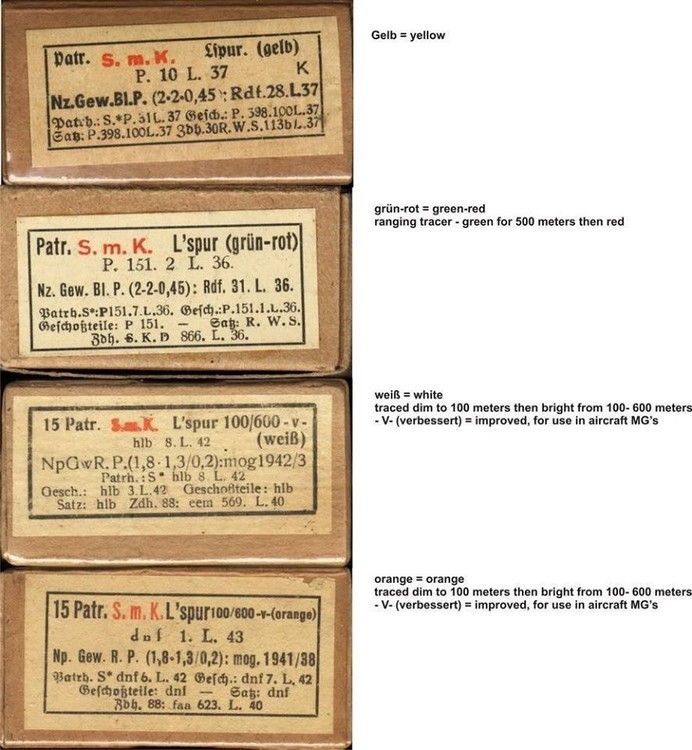 Patr. S. m. K. L'spur. (gelb)
P. 10 L. 37 K
Nz.Gew.Bl.P. (2·2·0,45): Rdf.28.L37
Patrh.: S.*P.31L.37 Gesch.: P. 398.100L.37
Satz: P.398.100L.37 Zdh.30R.W.S.113b L.37
Gelb = yellow
Patr. S. m. K. L'spur (grün-rot)
P. 151. 2 L. 36.
Nz. Gew. Bl. P. (2-2-0,45): Rdf. 31. L. 36.
Patrh.S*:P151.7.L.36. Gesch.:P.151.1.L.36.
Geschoßteile: P 151. — Satz: R. W. S.
Zdh. S. K. D 866. L. 36.
grün-rot = green-red
ranging tracer - green for 500 meters then red
15 Patr. S.m.K. L'spur 100/600 -v-
hlb 8. L. 42 (weiß)
NpGwR.P.(1,8·1,3/0,2):mog1942/3
Patrh.: S* hlb 8 L. 42
Gesch.: hlb 3.L.42 Geschoßteile: hlb
Satz: hlb Zdh. 88: eem 569. L. 40
weiß = white
traced dim to 100 meters then bright from 100- 600 meters
- V- (verbessert) = improved, for use in aircraft MG's
15 Patr. S. m. K. L'spur 100/600 -v-(orange)
dnf 1. L. 43
Np. Gew. R. P. (1,8·1,3/0,2): mog. 1941/38
Patrh. S* dnf 6. L. 42 Gesch.: dnf 7. L. 42
Geschoßteile: dnf — Satz: dnf
Zdh. 88: faa 623. L. 40
orange = orange
traced dim to 100 meters then bright from 100- 600 meters
- V- (verbessert) = improved, for use in aircraft MG's